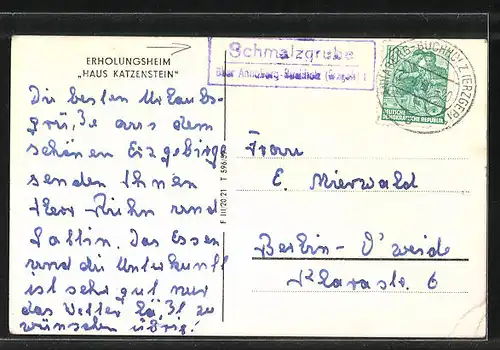 ERHOLUNGSHEIM
„HAUS KATZENSTEIN“
Die besten Urlaubs-
grüße aus dem
schönen Erzgebirge
senden Ihnen
Herr Kühn und
Gattin. Das Essen
und die Unterkunft
ist sehr gut nur
das Wetter läßt zu
wünschen übrig!
F III/20/21 T 596/59
Schmalzgrube
über Annaberg-Buchholz (Erzgeb.)
ANNABERG-BUCHHOLZ (ERZGEB)
DEUTSCHE
DEMOKRATISCHE REPUBLIK
Frau
E. Mierwald
Berlin-O'weide
Klarastr. 6